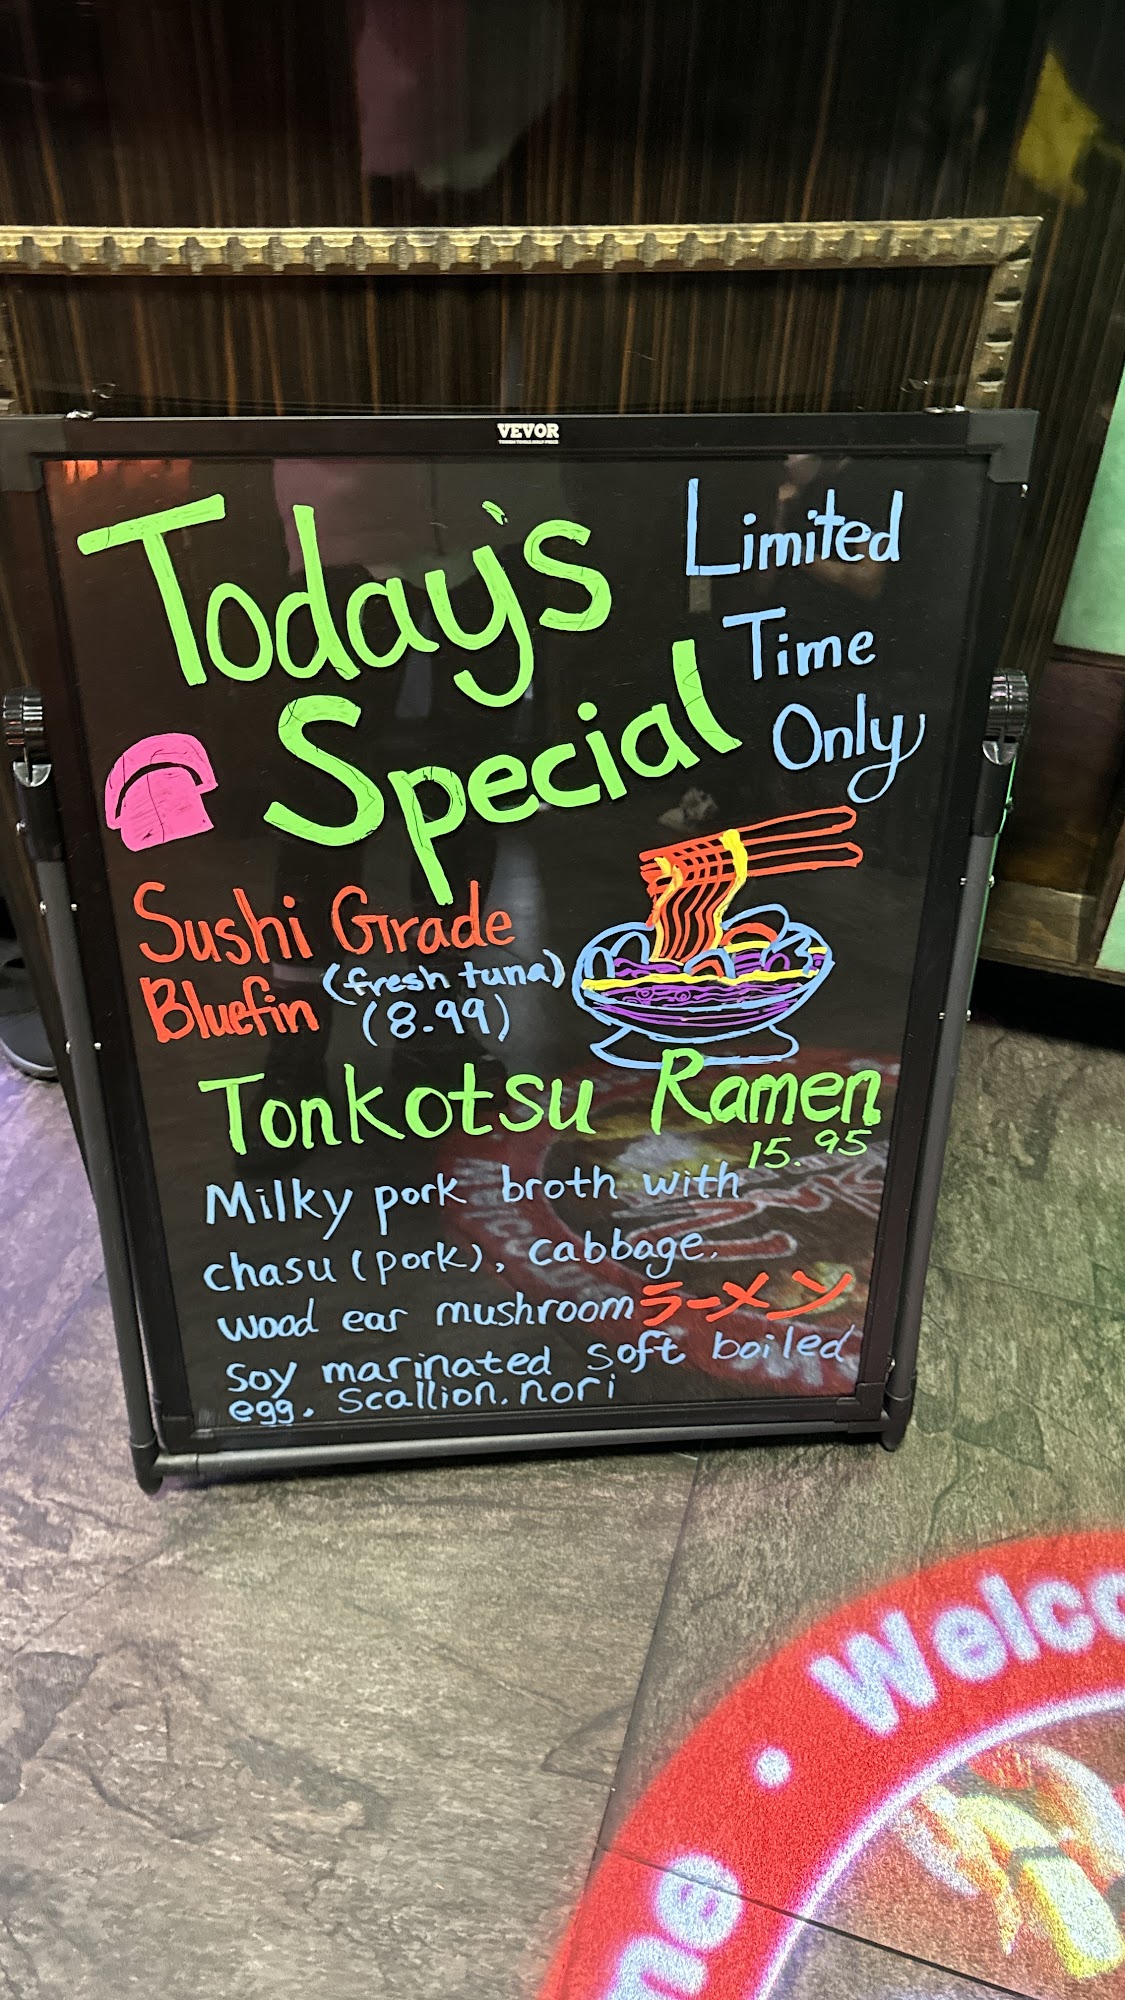 VEVOR
Today's
Special
Limited
Time
Only
Sushi Grade
Bluefin (fresh tuna)
(8.99)
Tonkotsu Ramen
15.95
Milky pork broth with
chasu (pork), cabbage,
wood ear mushroom ラーメン
soy marinated soft boiled
egg, scallion, nori